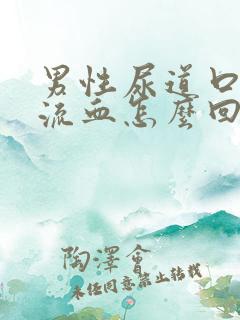 男性尿道口
流血怎麼回
陶澤會
未经同意禁止转载